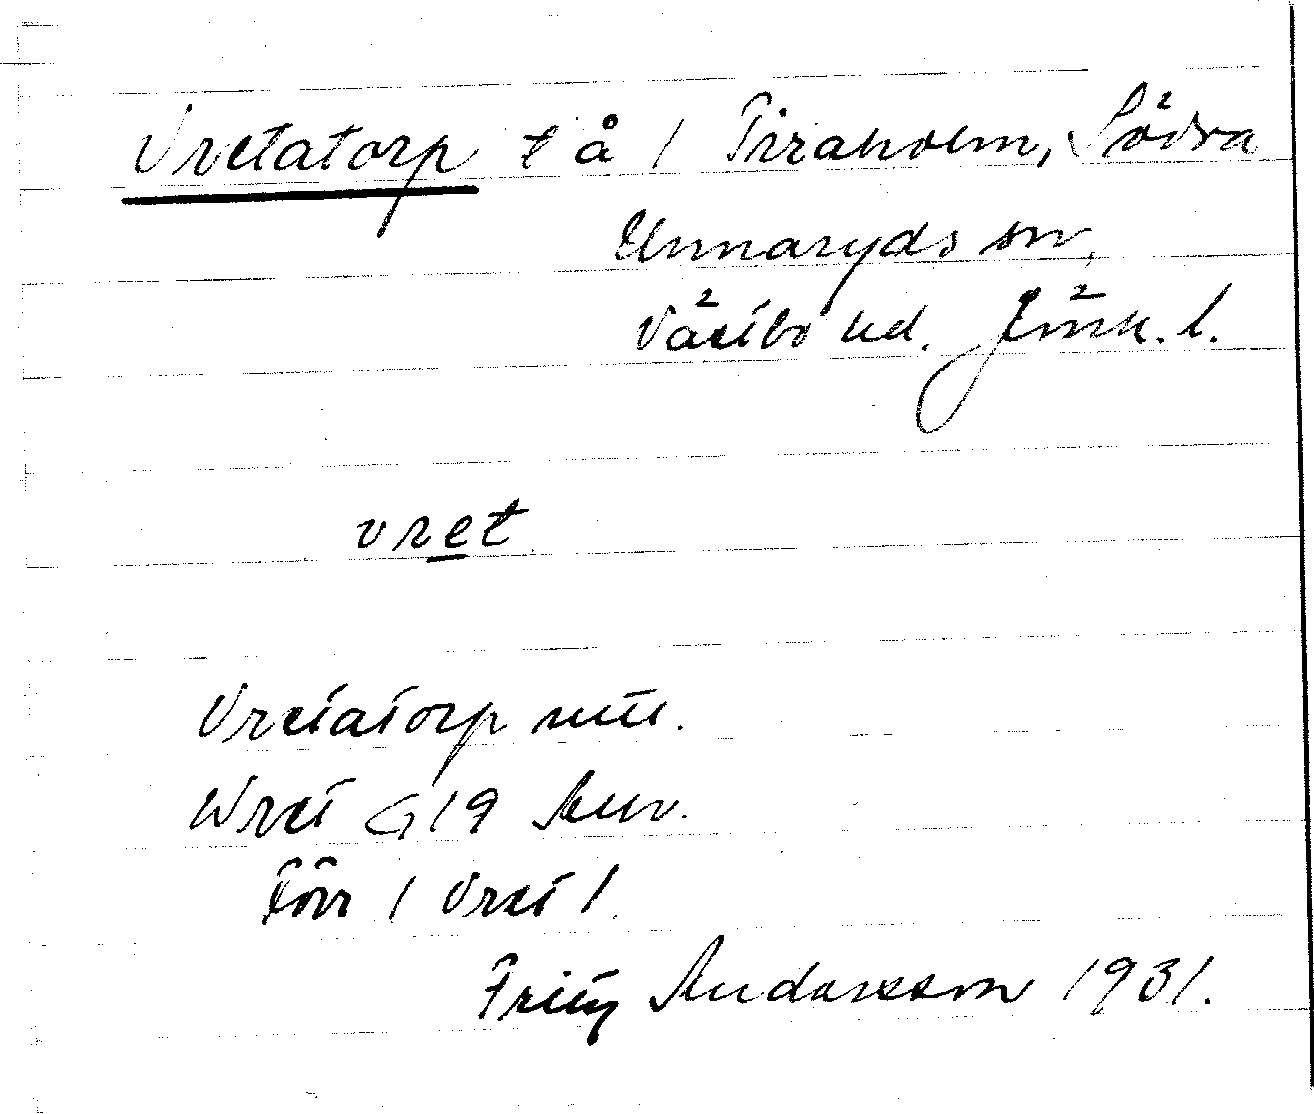 Vretatorp t å / Tiraholm, Södra
Unnaryds sn,
Västbo hd. Jönk. l.
vret
Vretatorp utt.
Wret G 19
förr / vret /
Fritz Andersson 1931.